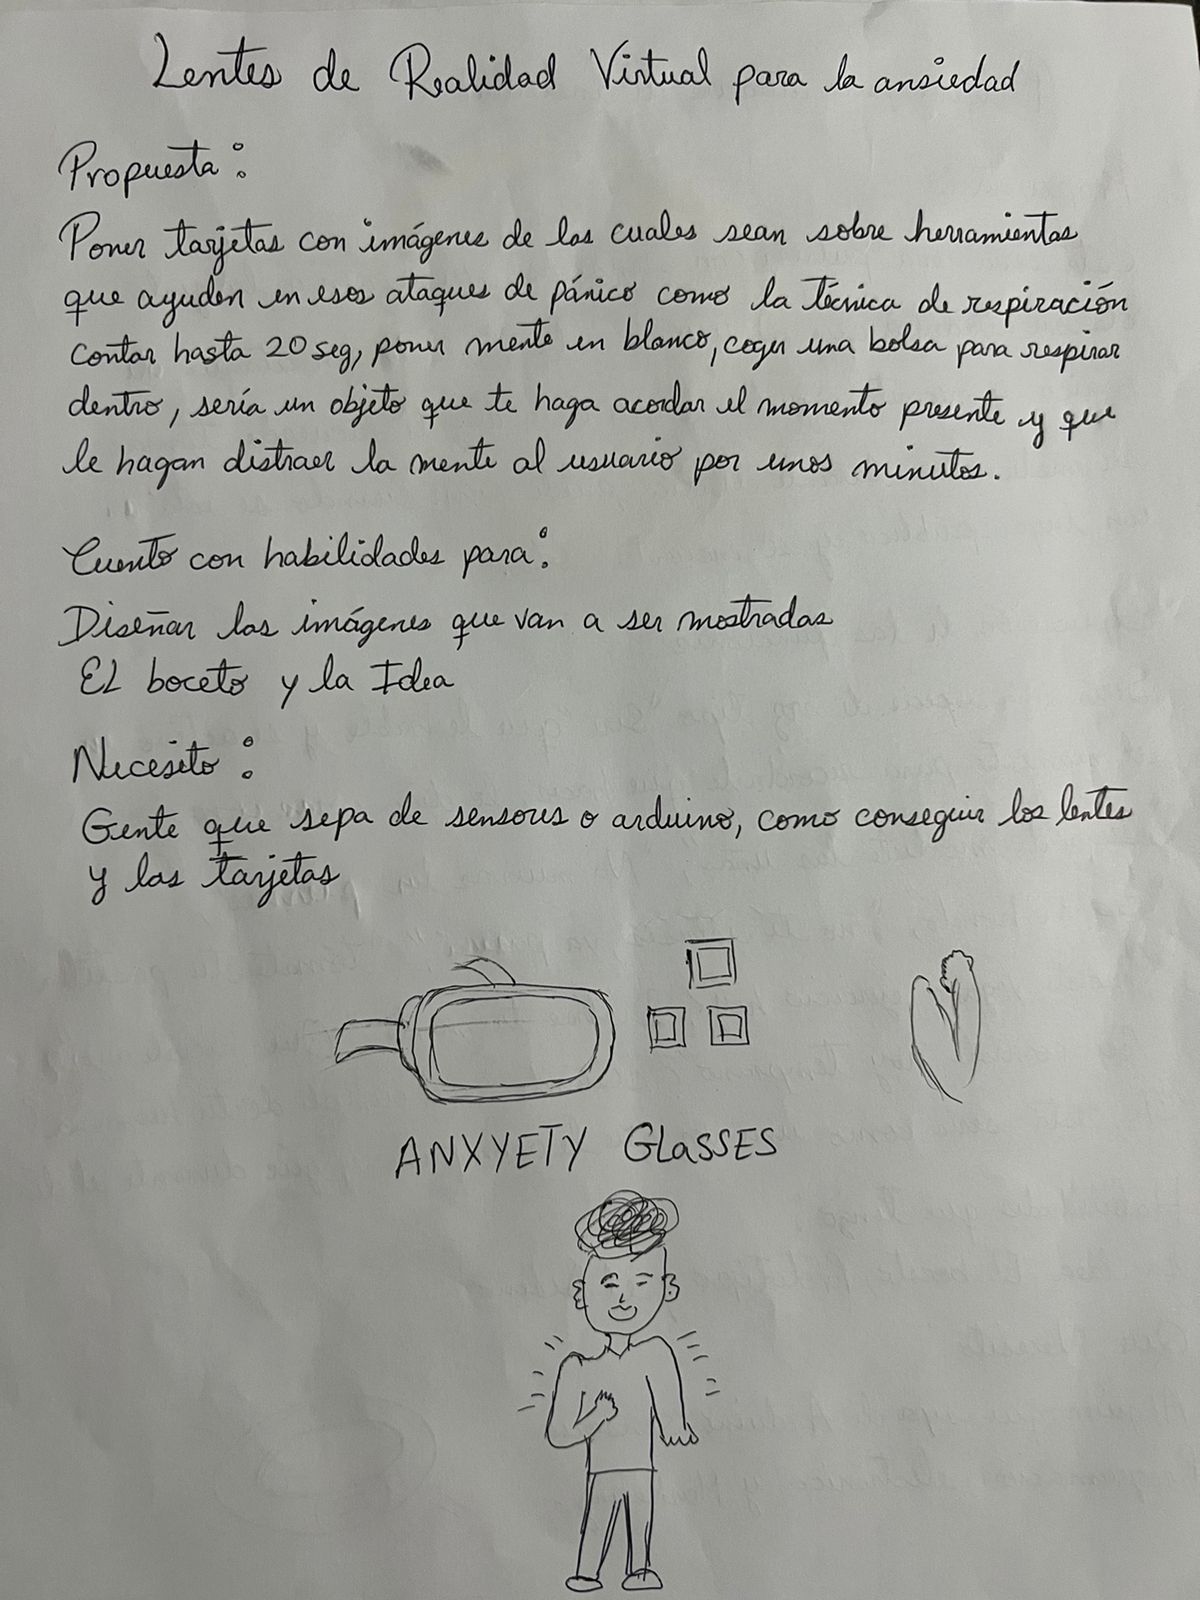 Lentes de Realidad Virtual para la ansiedad
Propuesta:
Poner tarjetas con imágenes de las cuales sean sobre herramientas
que ayuden en esos ataques de pánico como la técnica de respiración
contar hasta 20 seg, poner mente en blanco, coger una bolsa para respirar
dentro, sería un objeto que te haga acordar el momento presente y que
le hagan distraer la mente al usuario por unos minutos.
Cuento con habilidades para:
Diseñar las imágenes que van a ser mostradas
El boceto y la Idea
Necesito:
Gente que sepa de sensores o arduino, como conseguir los lentes
y las tarjetas
ANXYETY GLASSES